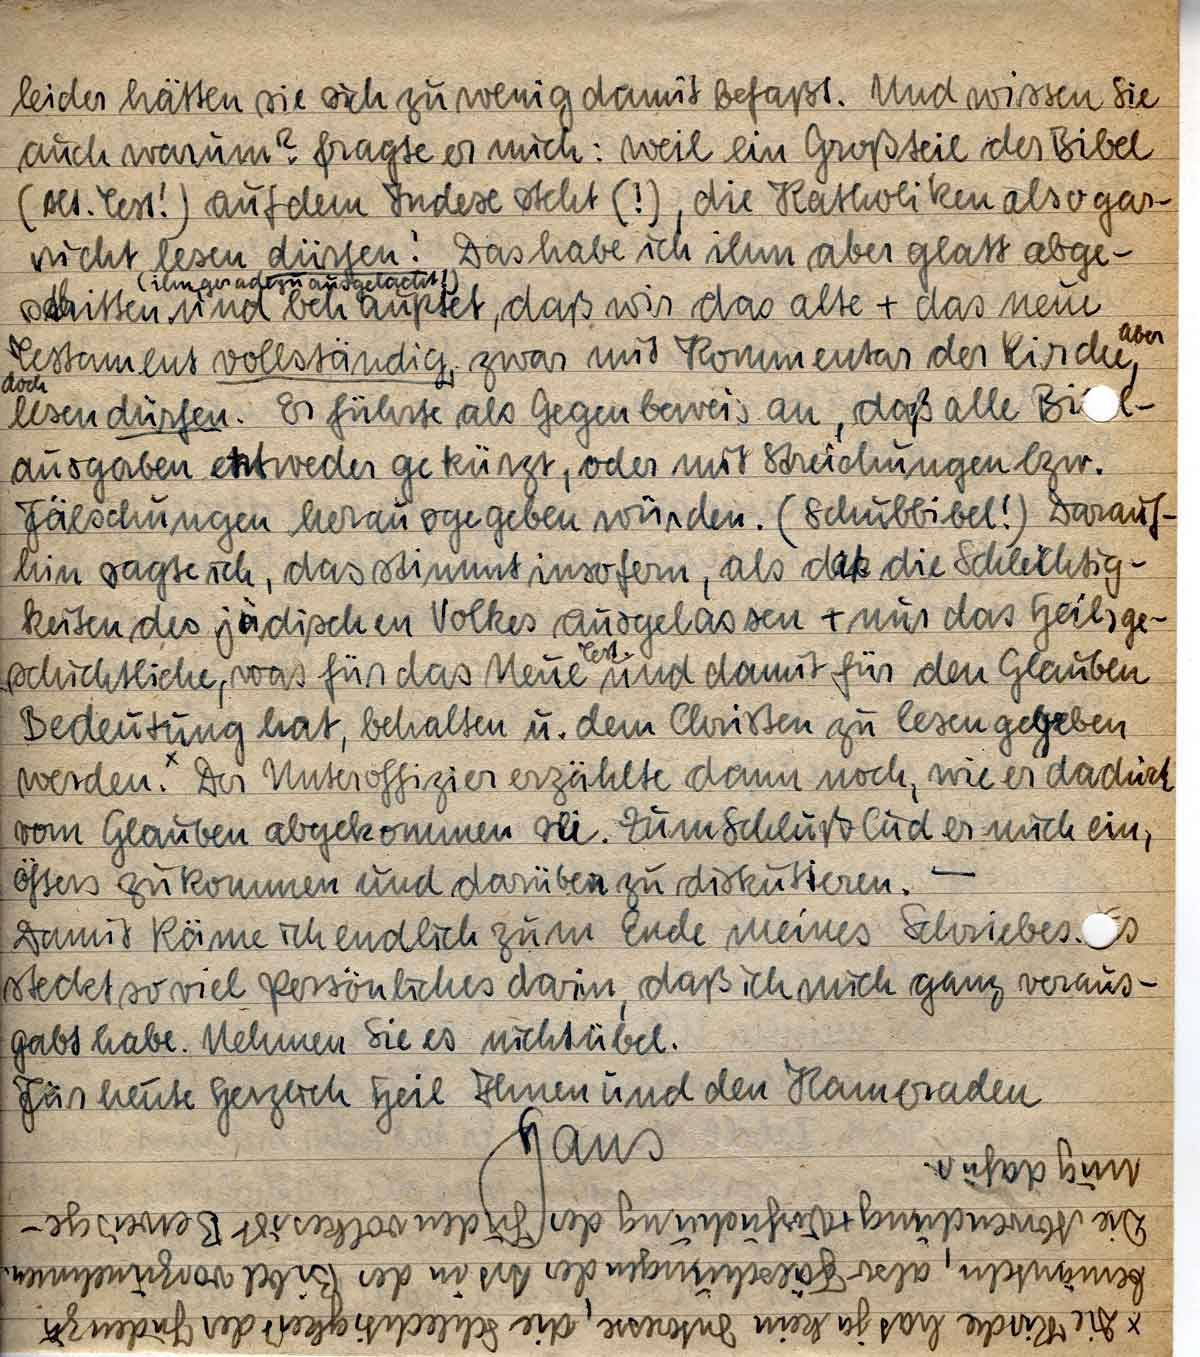 leider hätten sie sich zu wenig damit befaßt. Und wissen Sie
auch warum? fragte er mich: weil ein Großteil der Bibel
(Alt. Test!) auf dem Indexe steht (!), die Katholiken also gar-
nicht lesen dürfen! Das habe ich ihm aber glatt abge-
(ihn geradezu ausgelacht!)
stritten und behauptet, daß wir das alte + das neue
Testament vollständig, zwar mit Kommentar der Kirche, aber
doch
lesen dürfen. Er führte als Gegenbeweis an, daß alle Bi l-
ausgaben entweder gekürzt, oder mit Streichungen bzw.
Fälschungen herausgegeben würden. (Schulbibel!) Darauf-
hin sagte ich, das stimmt insofern, als daß die Schlechtig-
keiten des jüdischen Volkes ausgelassen + nur das Heilsge-
schichtliche, was für das Neue Test. und damit für den Glauben
Bedeutung hat, behalten u. dem Christen zu lesen gegeben
werden.x Der Unteroffizier erzählte dann noch, wie er dadurch
vom Glauben abgekommen sei. Zum Schluß lud er mich ein,
öfters zu kommen und darüber zu diskutieren. —
Damit käme ich endlich zum Ende meines Schriebes. Es
steckt so viel Persönliches darin, daß ich mich ganz veraus-
gabt habe. Nehmen Sie es nicht übel.
Für heute herzlich Heil Ihnen und den Kameraden
Hans
x Die Kirche hat ja kein Interesse, die Schlechtigkeit der Juden zu
bemänteln, also Fälschungen der Art in der Bibel vorzunehmen.
Die Abwendung + des Judenvolkes ist Beweis ge-
nug dafür.